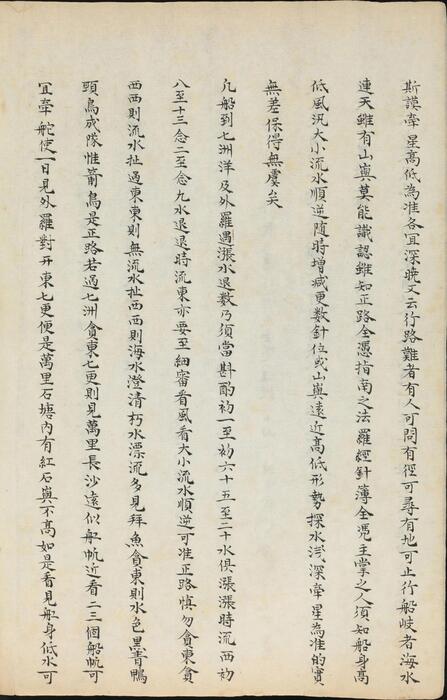 斯謨牽星高低為准各宜深曉又云行路難者有人可問有徑可尋有地可止行船岐者海水
連天雖有山輿莫能識認雖知正路全憑指南之法羅經針簿全凭主掌之人須知船身高
低風汛大小流水順逆随時增减更数針位或山輿遠近高低形勢探水浅深牽星為准的實
無差保得無虞矣
凢船到七洲洋及外羅遇漲水退数乃須當斟酌初一至初六十五至二十水俱漲漲時流西初
八至十三念二至念九水退退時流東亦要至細審看風看大小流水順逆可准正路慎勿貪東貪
西西則流水扯過東東則無流水扯西西則海水澄清朽水漂流多見拜魚貪東則水色黒青鴨
頭鳥成隊惟箭鳥是正路若過七洲貪東七更則見萬里長沙遠似船帆近看二三個船帆可
宜牽舵使一日見外羅對开東七更便是萬里石塘内有紅石輿不高如是看見船身低水可